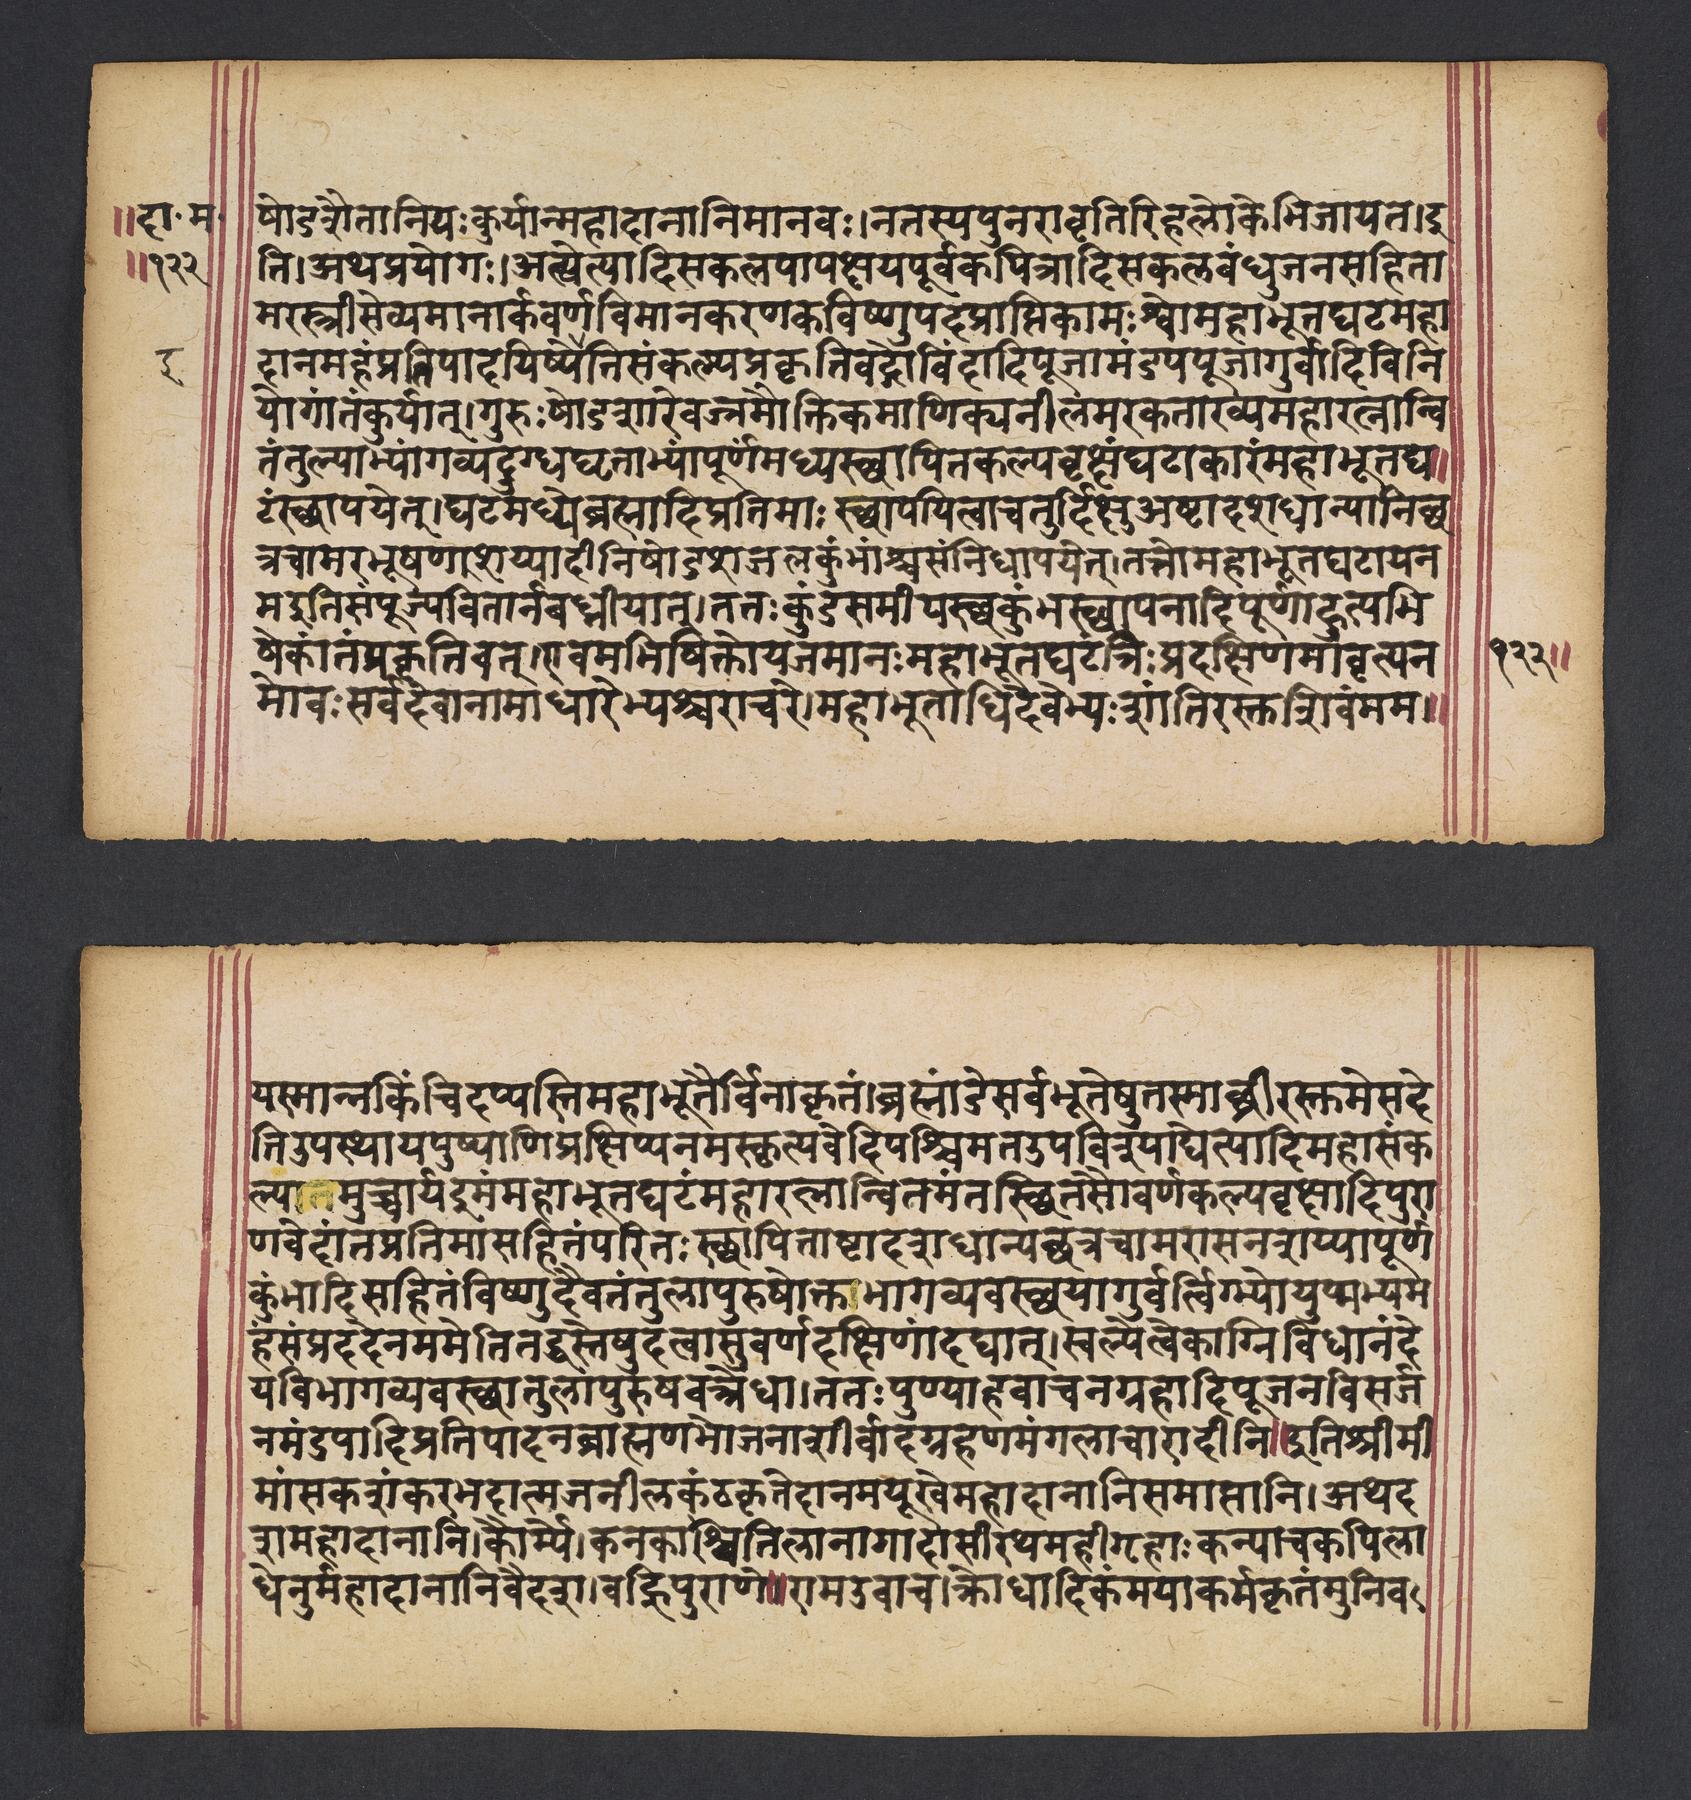 ॥दा॰म॰
॥१२२
षोडशैतानियःकुर्यान्महादानानिमानवः।नतस्यपुनरावृतिरिहलोकेभिजायत।इ
ति।अथप्रयोगः।अत्स्येत्यादिसकलपापक्षयपूर्वकपित्रादिसकलबंधुजनसहिता
मरस्त्रीसेव्यमानार्कवर्णविमानकरणकविष्णुपदप्राप्तिकामःश्वोमहाभूतघटमहा
दानमहंप्रतिपादयिष्येतिसंकल्प्यप्रकृतिवद्गोविंदादिपूजामंडपपूजागुर्वादिविनि
योगांतंकुर्यात्।गुरुःषोडशारेवज्रमौक्तिकमाणिक्यनीलमरकताख्यमहारत्नान्वि
तंतुल्याभ्यांगव्यदुग्धघृताभ्यांपूर्णंमध्यस्थापितकल्पवृक्षंघटाकारंमहाभूतघ॥
टंस्थापयेत्।घटमध्येब्रह्मादिप्रतिमाःस्थापयित्वाचतुर्दिक्षुअष्टादशधान्यानिछ
त्रचामरभूषणाशय्यादीनिषोडशजलकुंभांश्चसंनिधापयेत्।तत्रोमहाभूतघटायन
मइतिसंपूज्यवितानंबध्नीयात्।ततःकुंडसमीपस्थकुंभस्थापनादिपूर्णाहुत्यभि
षेकांतंप्रकृतिवत्।एवमभिषिक्तोयजमानःमहाभूतघटंत्रिःप्रदक्षिणमावृत्यन
मोवःसर्वदेवानामाधारेभ्यश्चराचरे।महाभूताधिदेवेभ्यःशांतिरस्तुशिवंमम॥
१२२॥
यस्मान्नकिंचिदप्यस्तिमहाभूतैर्विनाकृतं।ब्रह्मांडेसर्वभूतेषुतस्माच्छ्रीरस्तुमेसदे
तिउपस्थायपुष्पाणिप्रक्षिप्यनमस्कृत्यवेदिपश्चिमतउपविश्यपाद्येत्यादिमहासंक
ल्पांतमुच्चार्यइमंमहाभूतघटंमहारत्नान्वितमंतस्थितसौवर्णकल्पवृक्षादिपुरा
णवेदांतप्रतिमासहितंपरितःस्थापिताष्टादशधान्यछत्रचामरासनशय्यापूर्ण
कुंभादिसहितंविष्णुदैवतंतुलापुरुषोक्तभागव्यवस्थयागुर्वर्त्विग्भ्योयुष्मभ्यम
हंसंप्रददेनममेतितद्धस्तेषुदत्वासुवर्णदक्षिणांदद्यात्।स्वल्पेत्वेकाग्निविधानंदे
यविभागव्यवस्थातुलापुरुषवत्रेधा।ततःपुण्याहवाचनग्रहादिपूजनविसर्ज
नमंडपादिप्रतिपादनब्राह्मणभोजनाशीर्वादग्रहणमंगलाचारादीनि॥इतिश्रीमी
मांसकशंकरभट्टात्मजनीलकंठकृतेदानमयूखेमहादानानिसमाप्तानि।अथद
शमहादानानि।कौर्म्ये।कनकाश्वतिलानागादासीरथमहीगृहाः कन्याचकपिला
धेनुर्महादानानिवैदश।वह्निपुराणे॥रामउवाच।क्रोधादिकंमयाकर्मकृतंमुनिव